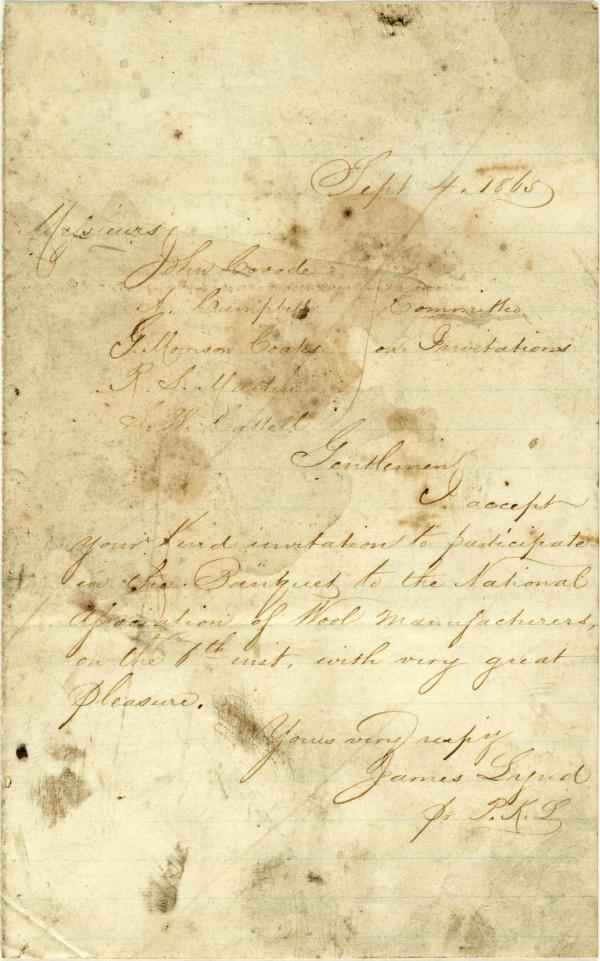 Sept 4. 1865
Messieurs
John Covode
A. Campbell Committee
G. Morrison Coates on Invitations
R. S. Martin
S. W. Cattell
Gentlemen
I accept
your kind invitation to participate
in the Banquet to the National
Association of Wool Manufacturers,
on the 6th inst, with very great
pleasure.
Yours very respy
James Lynd
pr P. K. L